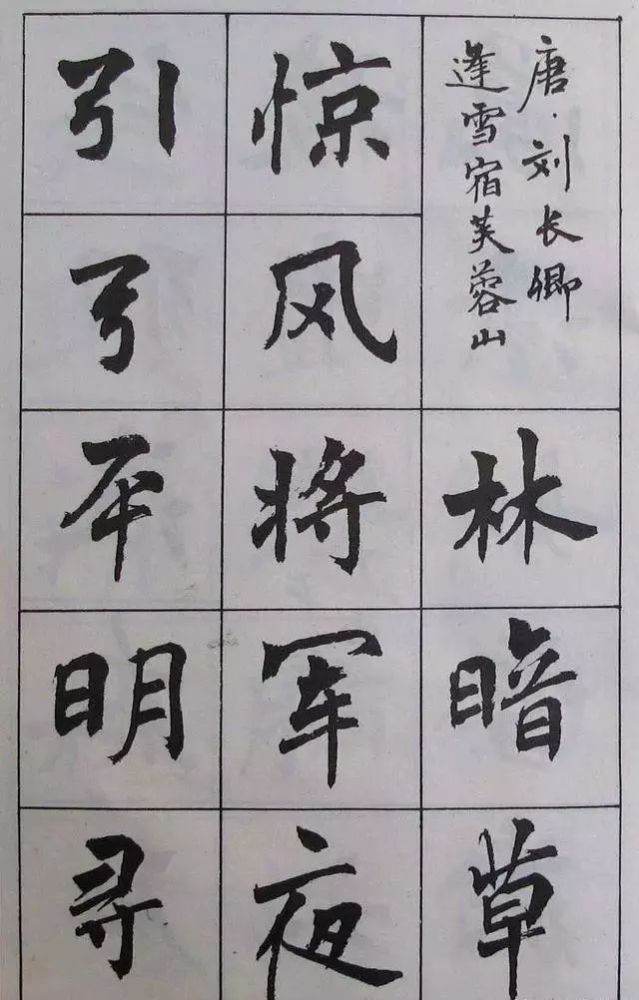 唐·刘长卿
逢雪宿芙蓉山
林暗草
惊风将军夜
引弓平明寻